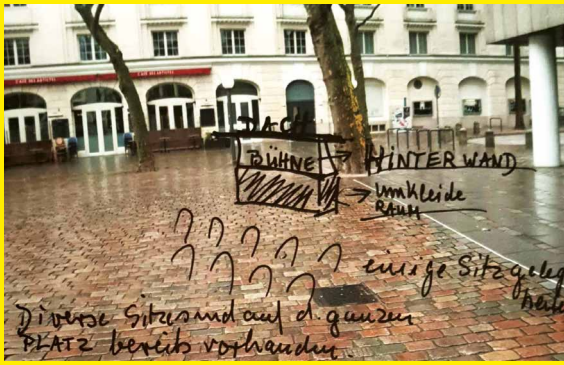 CAFÉ DES ARTISTES
DACH
BÜHNE → HINTERWAND
→ umkleide
RAUM
einige Sitzgelegen
heite
Diverse Sitze sind auf d. ganzen
PLATZ bereits vorhanden.